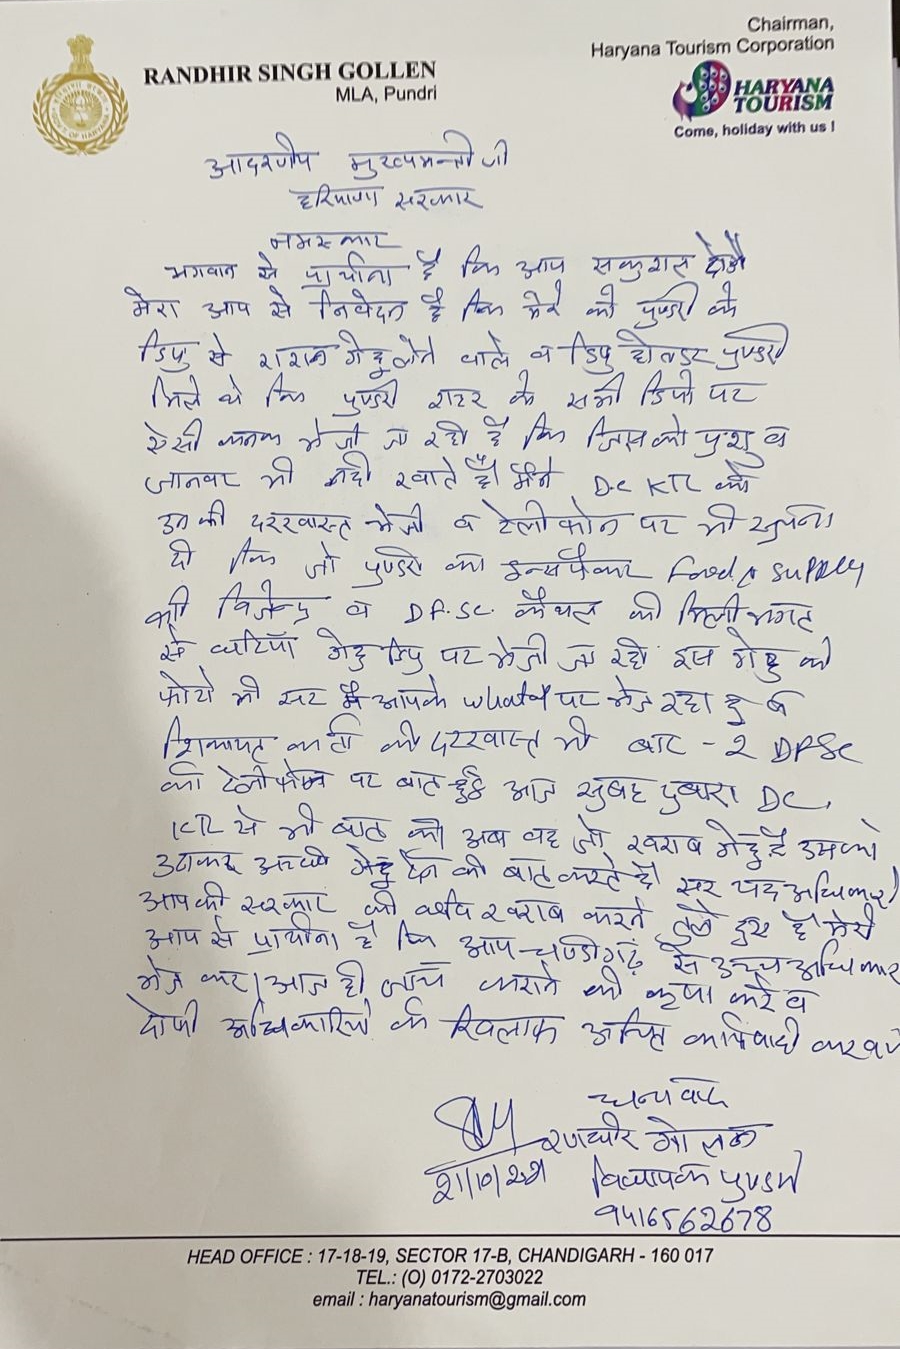 Chairman,
Haryana Tourism Corporation
RANDHIR SINGH GOLLEN
MLA, Pundri
HARYANA
TOURISM
Come, holiday with us !
आदरणीय मुख्यमन्त्री जी
हरियाणा सरकार
नमस्कार
भगवान से प्रार्थना है कि आप सकुशल होंगे
मेरा आप से निवेदन है कि मेरे को पुण्डरी के
डिपु से राशन गेहु लेने वाले व डिपु होलडर पुण्डरी
मिले थे कि पुण्डरी शहर के सभी डिपो पर
ऐसी कनक भेजी जा रही है कि जिसको पशु व
जानवर भी नही खाते है। मैने DC KTL को
उनकी दरखास्त भेजी व टेलीफोन पर भी सूचना
दी कि जो पुण्डरी का इन्सपैक्टर Food & Supply
की विजेन्द्र व DFSC कैथल की मिलीभगत
से घटिया गेहु डिपु पर भेजी जा रही इस गेहु की
फोटो भी सर मै आपके what पर भेज रहा हु व
शिकायत कर्ता की दरखास्त भी बार-२ DFSC
की टेलीफोन पर बात हुई आज सुबह दुबारा DC,
KTL से भी बात की अब वह जो खराब गेहु है उसको
उठाकर अच्छी गेहु देने की बात करते है। सर यह अधिकारी
आपकी सरकार की छवि खराब करने तुले हुए है मेरी
आप से प्रार्थना है कि आप चण्डीगढ़ से उच्च अधिकारी
भेज कर आज ही जांच कराने की कृपा करे व
दोषी अधिकारियों के खिलाफ उचित कार्यवाही करवाये
धन्यवाद
रणधीर गोलन
21/10/2021 विधायक पुण्डरी
9416562678
HEAD OFFICE : 17-18-19, SECTOR 17-B, CHANDIGARH - 160 017
TEL.: (O) 0172-2703022
email : haryanatourism@gmail.com